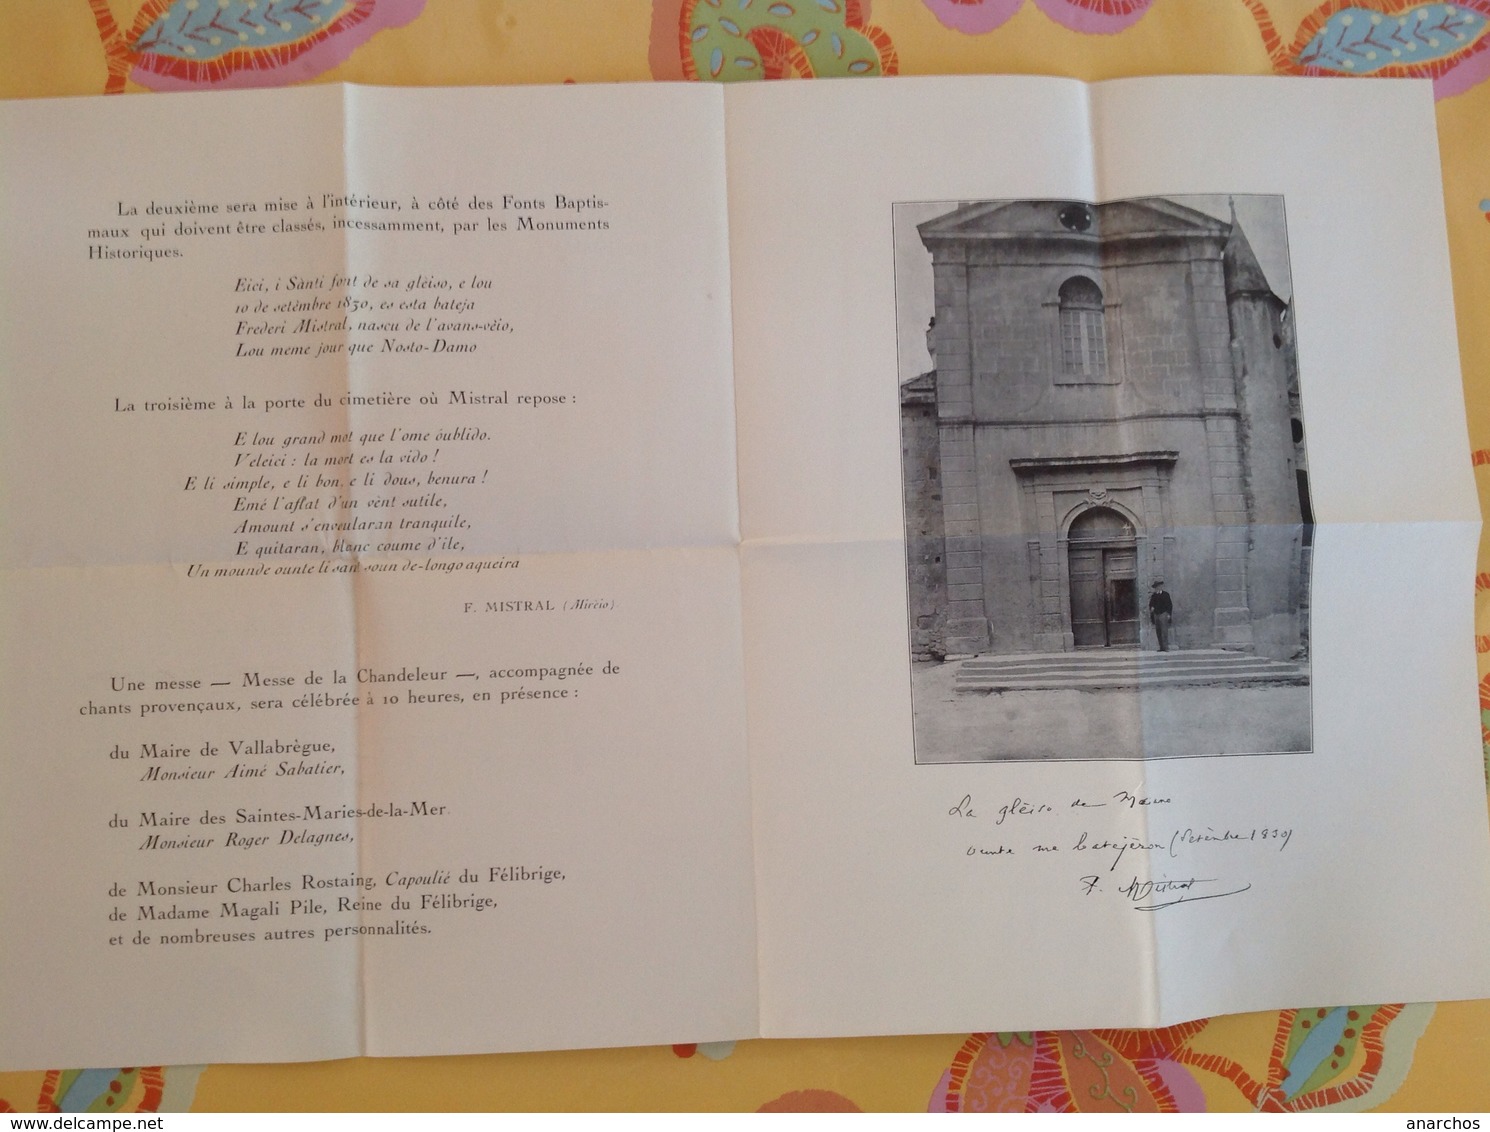 La deuxième sera mise à l'intérieur, à côté des Fonts Baptis-
maux qui doivent être classés, incessamment, par les Monuments
Historiques.
Eici, i Sànti font de sa glèiso, e lou
10 de setèmbre 1830, es esta bateja
Frederi Mistral, nascu de l'avans-vèio,
Lou meme jour que Nosto-Damo
La troisième à la porte du cimetière où Mistral repose :
E lou grand mot que l'ome óublido.
Veleici : la mort es la vido !
E li simple, e li bon, e li dous, benura !
Emé l'aflat d'un vènt sutile,
Amount s'envoularan tranquile,
E quitaran, blanc coume d'ile,
Un mounde ounte li sant soun de-longo aqueira
F. MISTRAL (Mirèio).
Une messe — Messe de la Chandeleur —, accompagnée de
chants provençaux, sera célébrée à 10 heures, en présence :
du Maire de Vallabrègue,
Monsieur Aimé Sabatier,
du Maire des Saintes-Maries-de-la-Mer.
Monsieur Roger Delagnes,
de Monsieur Charles Rostaing, Capoulié du Félibrige,
de Madame Magali Pile, Reine du Félibrige,
et de nombreuses autres personnalités.
La glèiso de
ounte me batejèron (Setèmbre 1830)
F. Mistral
www.delcampe.net
anarchos